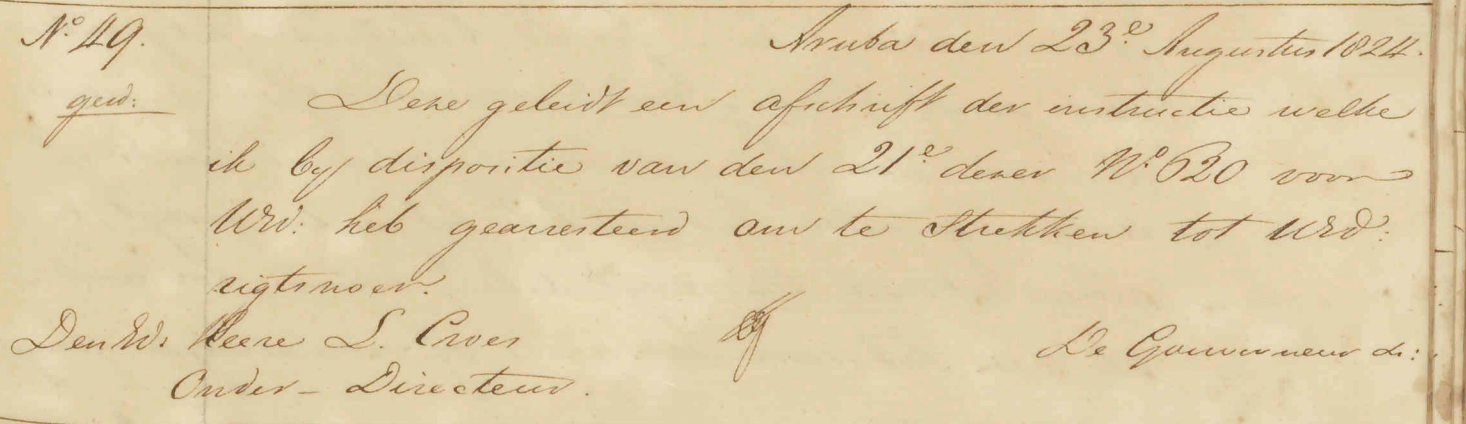 No 49. Aruba den 23e Augustus 1824.
gew: Deze geleidt een afschrift der instructie welke
ik by dispositie van den 21e dezer No 620 voor
UEd: heb gearresteerd om te strekken tot UEd:
rigtsnoer.
Den Ed: Heere L. Croes De Gouverneur &:
Onder-Directeur.